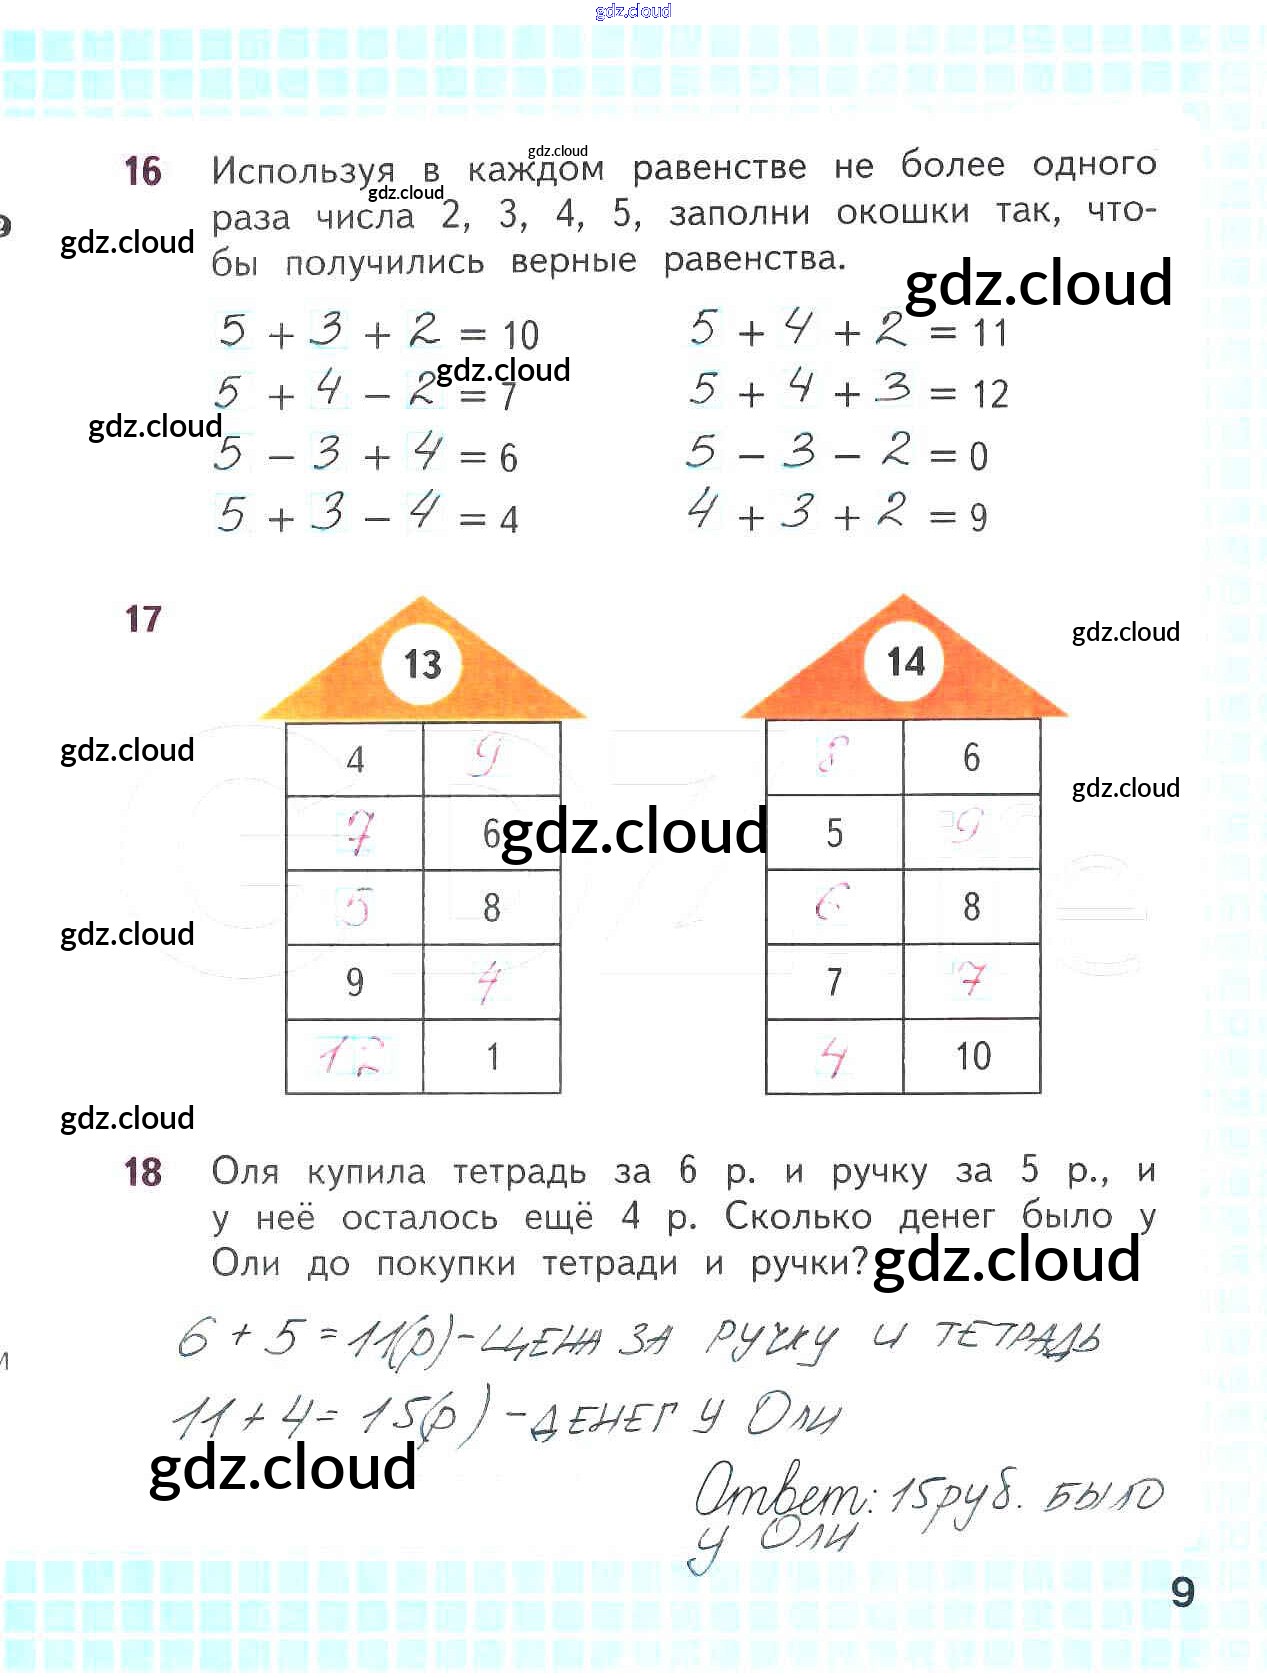 gdz.cloud
16 Используя в каждом равенстве не более одного
gdz.cloud
раза числа 2, 3, 4, 5, заполни окошки так, что-
gdz.cloud
gdz.cloud
бы получились верные равенства.
gdz.cloud
5 + 3 + 2 = 10 5 + 4 + 2 = 11
gdz.cloud
5 + 4 - 2 = 7 5 + 4 + 3 = 12
gdz.cloud
5 - 3 + 4 = 6 5 - 3 - 2 = 0
5 + 3 - 4 = 4 4 + 3 + 2 = 9
17
gdz.cloud
13 14
gdz.cloud
4 9 8 6
gdz.cloud
7 6 5 9
gdz.cloud
5 8 6 8
gdz.cloud
9 4 7 7
12 1 4 10
gdz.cloud
18 Оля купила тетрадь за 6 р. и ручку за 5 р., и
у неё осталось ещё 4 р. Сколько денег было у
Оли до покупки тетради и ручки?
gdz.cloud
6 + 5 = 11(р) - ЦЕНА ЗА РУЧКУ И ТЕТРАДЬ
11 + 4 = 15(р) - ДЕНЕГ У Оли
gdz.cloud
Ответ: 15 руб. было
у Оли
9